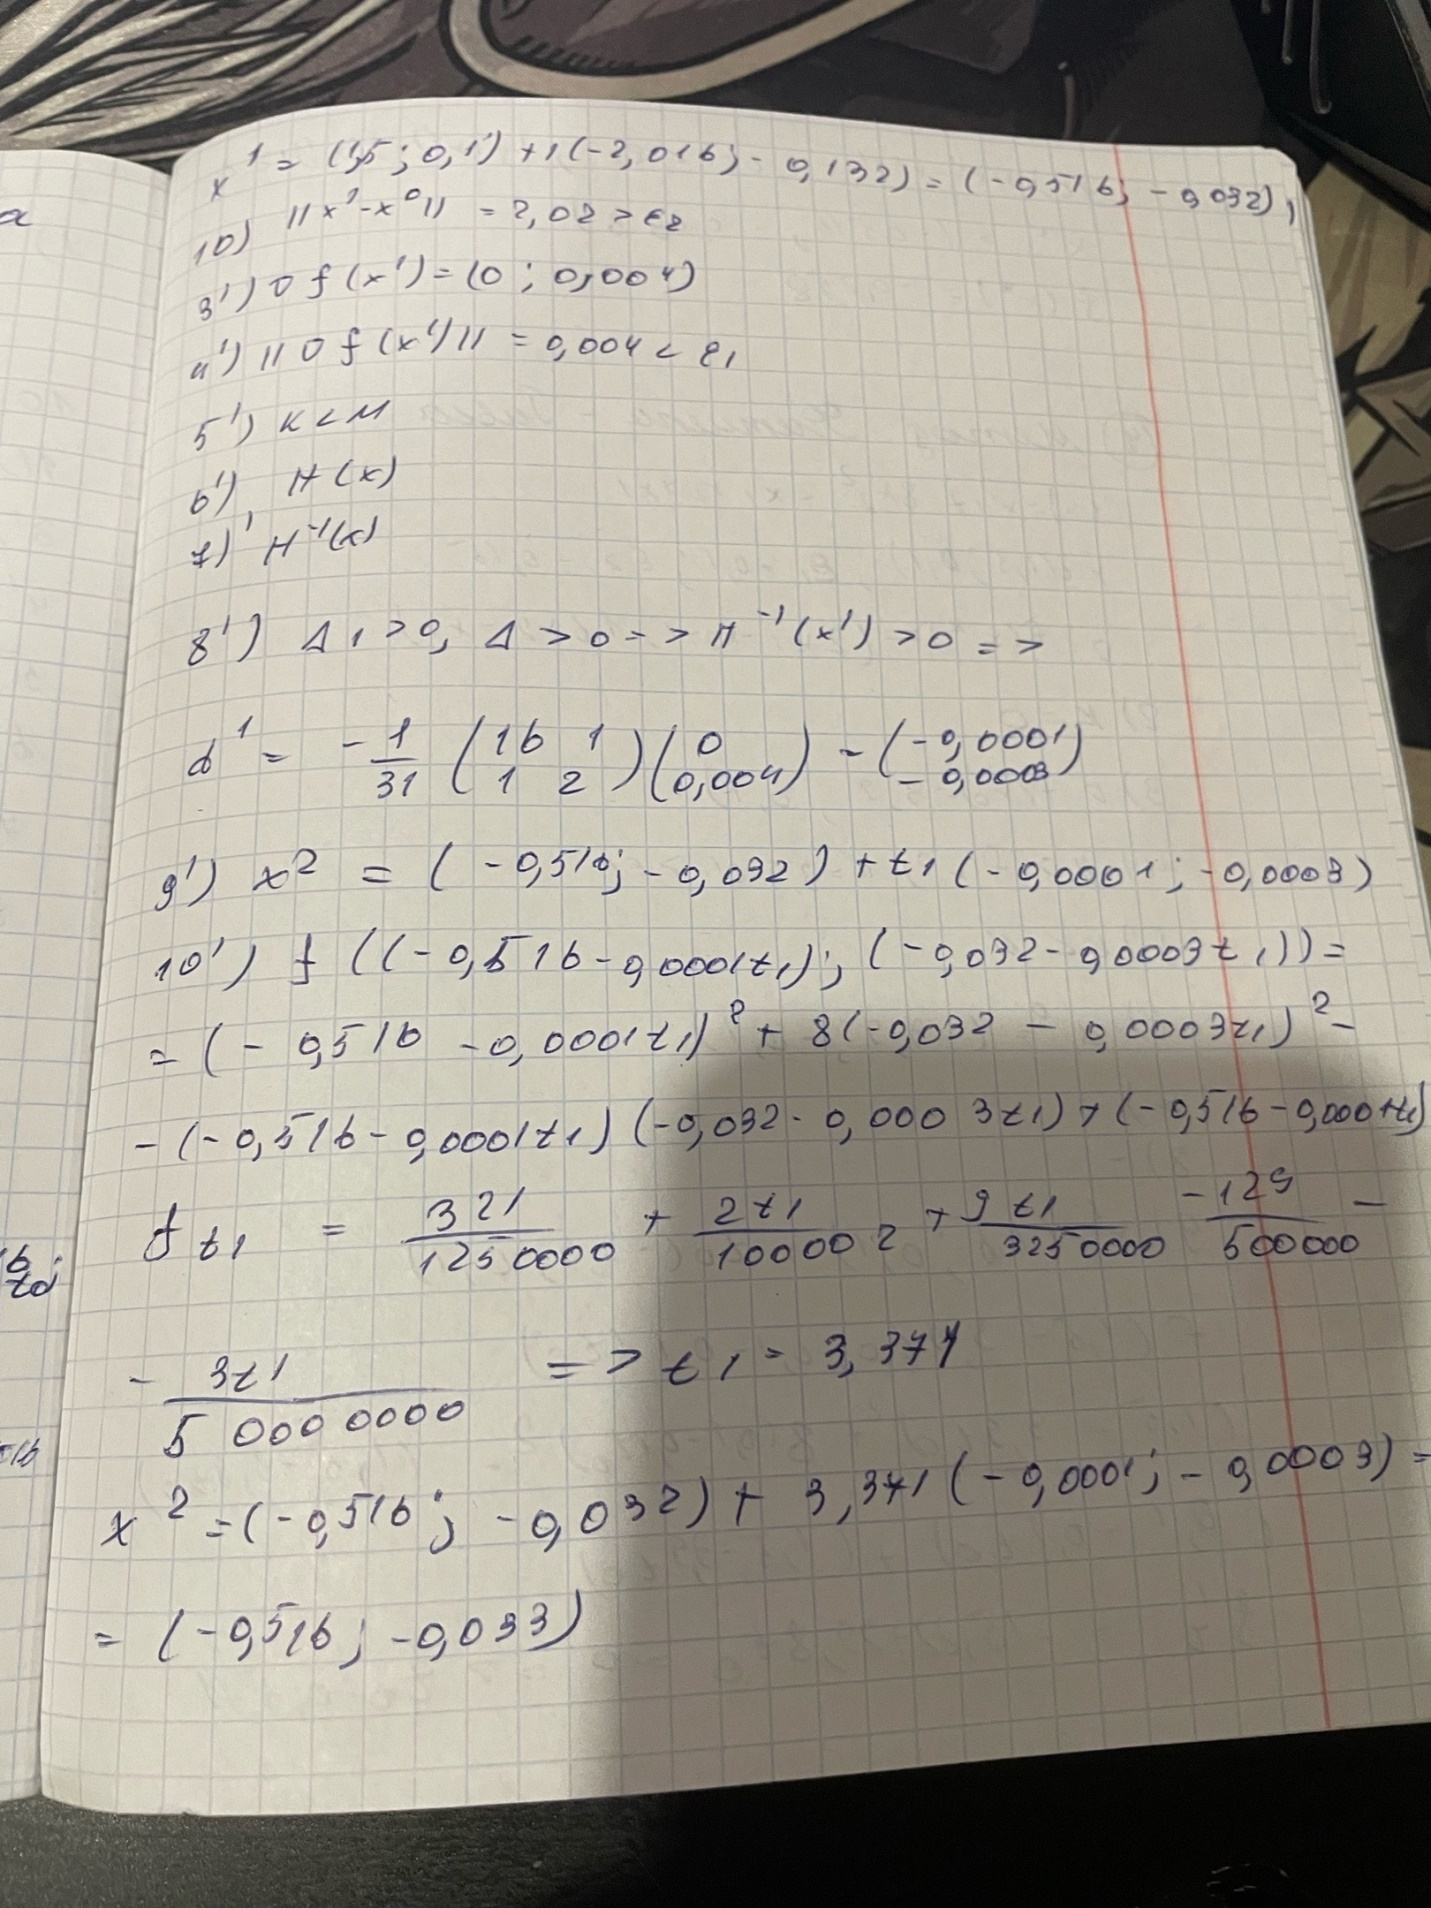 x¹ = (1,5 ; 0,1) + 1(-2,016; -0,132) = (-0,516; -0,032),
10) ||x¹-x⁰|| = 2,02 > ε2
3') ∇f(x¹) = (0 ; 0,004)
4') ||∇f(x¹)|| = 0,004 < ε1
5') K < M
6') H(x)
7)' H⁻¹(x)
8') Δ1 > 0, Δ > 0 => H⁻¹(x¹) > 0 =>
d¹ = -1/31 (16 1; 1 2)(0; 0,004) = (-0,0001; -0,0003)
9') x² = (-0,516; -0,032) + t1(-0,0001; -0,0003)
10') f((-0,516-0,0001t1); (-0,032-0,0003t1)) =
= (-0,516-0,0001t1)² + 8(-0,032-0,0003t1)² -
-(-0,516-0,0001t1)(-0,032-0,0003t1)+(-0,516-0,0001t1)
f t1 = 321/1250000 + 2t1/10000² + 9t1/3250000 -129/500000 -
- 3t1/50000000 => t1 = 3,371
x² = (-0,516; -0,032) + 3,371(-0,0001; -0,0003) =
= (-0,516; -0,033)